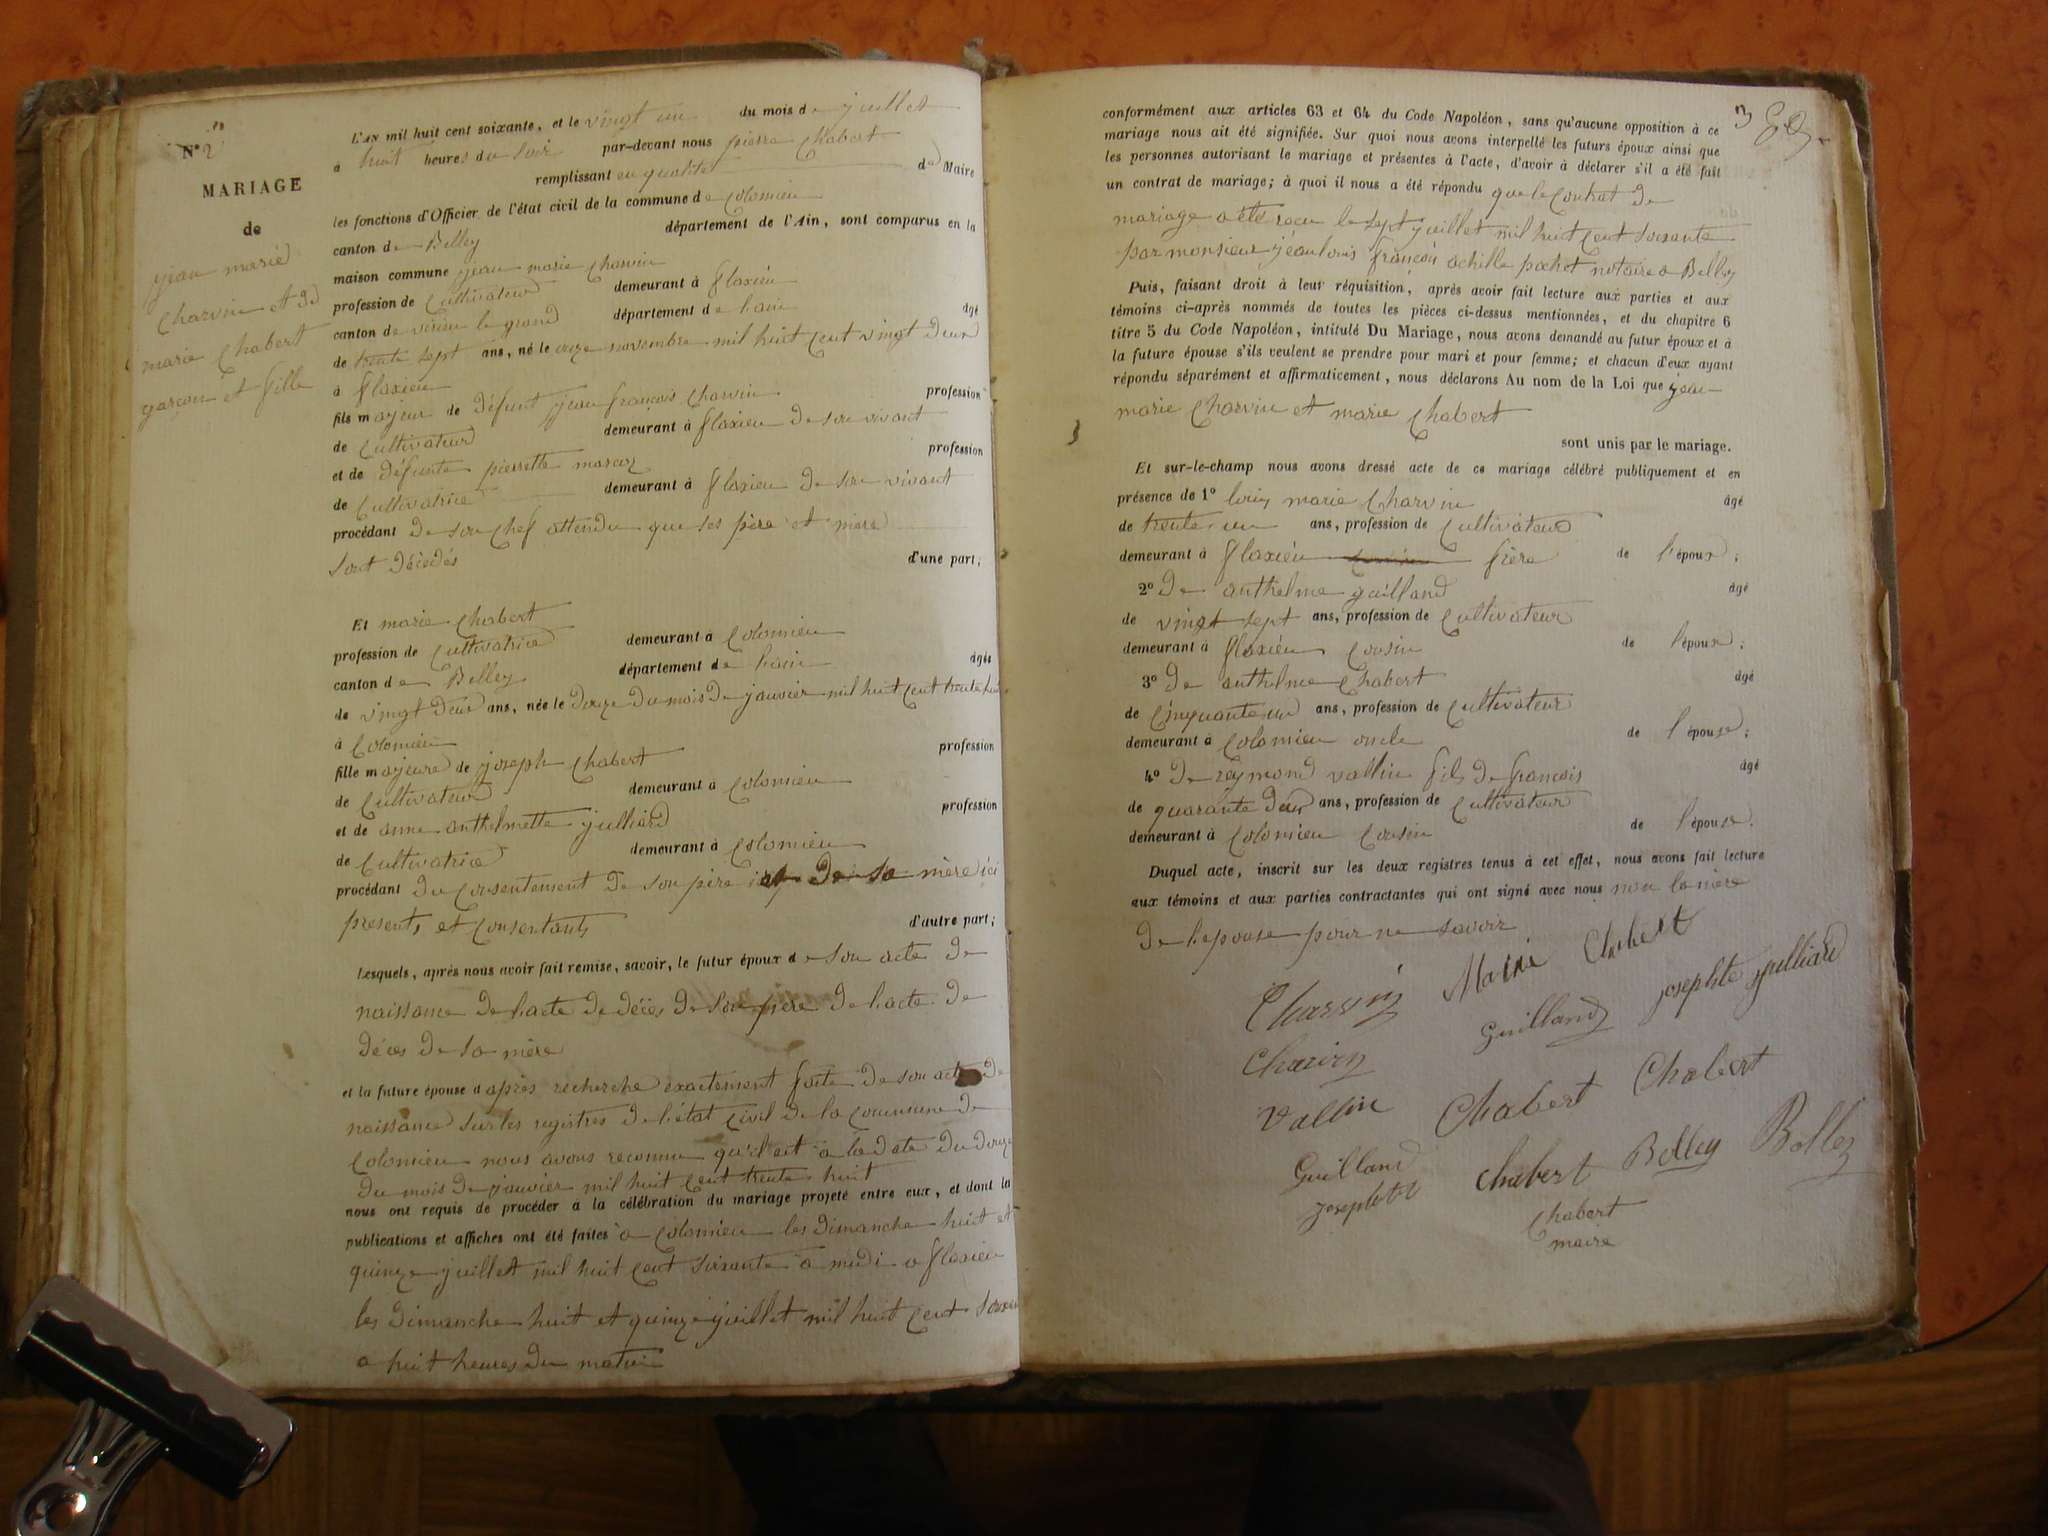 N° 2
MARIAGE
de
jean marie
Charvin et de
marie Chabert
garçon et fille
L'AN mil huit cent soixante, et le vingt un du mois de juillet
a huit heures du soir par-devant nous pierre Chabert
remplissant en qualité de Maire
les fonctions d'Officier de l'état civil de la commune de Colomieu
canton de Belley département de l'Ain, sont comparus en la
maison commune jean marie Charvin
profession de Cultivateur demeurant à flaxieu
canton de virieu le grand département de lain âgé
de trente sept ans, né le onze novembre mil huit cent vingt deux
à flaxieu
fils majeur de défunt jean françois Charvin profession
de Cultivateur demeurant à flaxieu de son vivant
et de défunte pierrette profession
de Cultivatrice demeurant à flaxieu de son vivant
procédant de son chef attendu que ses père et mère
sont décédés d'une part;
Et marie Chabert
profession de Cultivatrice demeurant à Colomieu
canton de Belley département de lain âgée
de vingt deux ans, née le douze du mois de janvier mil huit cent trente huit
à Colomieu
fille majeure de joseph Chabert profession
de Cultivateur demeurant à Colomieu
et de anne anthelmette julliard profession
de Cultivatrice demeurant à Colomieu
procédant du consentement de son père et de sa mère ici
presents et consentants d'autre part;
Lesquels, après nous avoir fait remise, savoir, le futur époux de son acte de
naissance de lacte de décès de son père de lacte de
décès de sa mère
et la future épouse d après recherche exactement faite de son acte de
naissance sur les registres de l'état civil de la commune de
Colomieu nous avons reconnu qu'il est a la date du douze
du mois de janvier mil huit cent trente huit
nous ont requis de procéder à la célébration du mariage projeté entre eux, et dont la
publications et affiches ont été faites à Colomieu les dimanche huit et
quinze juillet mil huit cent soixante a midi a flaxieu
les dimanche huit et quinze juillet mil huit cent soixante
a huit heures du matin
3
conformément aux articles 63 et 64 du Code Napoléon, sans qu'aucune opposition à ce
mariage nous ait été signifiée. Sur quoi nous avons interpellé les futurs époux ainsi que
les personnes autorisant le mariage et présentes à l'acte, d'avoir à déclarer s'il a été fait
un contrat de mariage; à quoi il nous a été répondu que le Contrat de
mariage a été recu le sept juillet mil huit cent soixante
par monsieur jean louis françois achille pochet notaire a Belley
Puis, faisant droit à leur réquisition, après avoir fait lecture aux parties et aux
témoins ci-après nommés de toutes les pièces ci-dessus mentionnées, et du chapitre 6
titre 5 du Code Napoléon, intitulé Du Mariage, nous avons demandé au futur époux et à
la future épouse s'ils veulent se prendre pour mari et pour femme; et chacun d'eux ayant
répondu séparément et affirmativement, nous déclarons Au nom de la Loi que jean
marie Charvin et marie Chabert
sont unis par le mariage.
Et sur-le-champ nous avons dressé acte de ce mariage célébré publiquement et en
présence de 1° louis marie Charvin âgé
de trente un ans, profession de Cultivateur
demeurant à flaxieu frère de l'époux;
2° De anthelme guilland âgé
de vingt sept ans, profession de Cultivateur
demeurant à flaxieu Cousin de l'époux;
3° De anthelme Chabert âgé
de Cinquante un ans, profession de Cultivateur
demeurant à Colomieu oncle de l'épouse;
4° De reymond vallin fils de francois âgé
de quarante deux ans, profession de Cultivateur
demeurant à Colomieu Cousin de l'épouse.
Duquel acte, inscrit sur les deux registres tenus à cet effet, nous avons fait lecture
aux témoins et aux parties contractantes qui ont signé avec nous non la mère
De lepouse pour ne savoir
Charvin Marie Chabert
Charvin Guilland josephte julliard
Vallin Chabert Chabert
Guilland Chabert Belley Belley
Josephte Chabert
maire